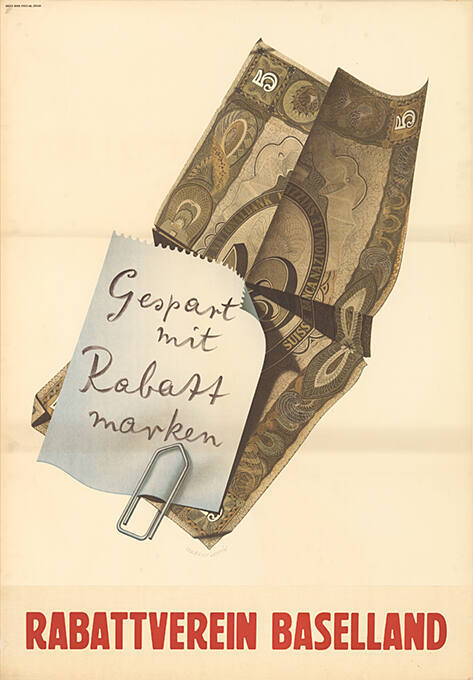 5
5
SUISSE
Gespart
mit
Rabatt
marken
RABATTVEREIN BASELLAND